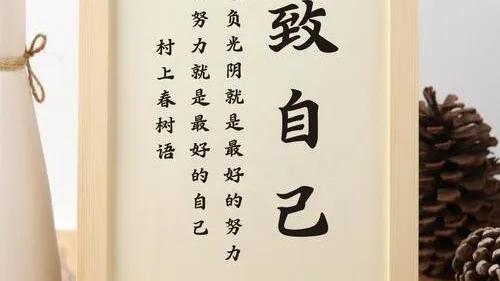 致自己
负光阴就是最好的努力
努力就是最好的自己
村上春树语